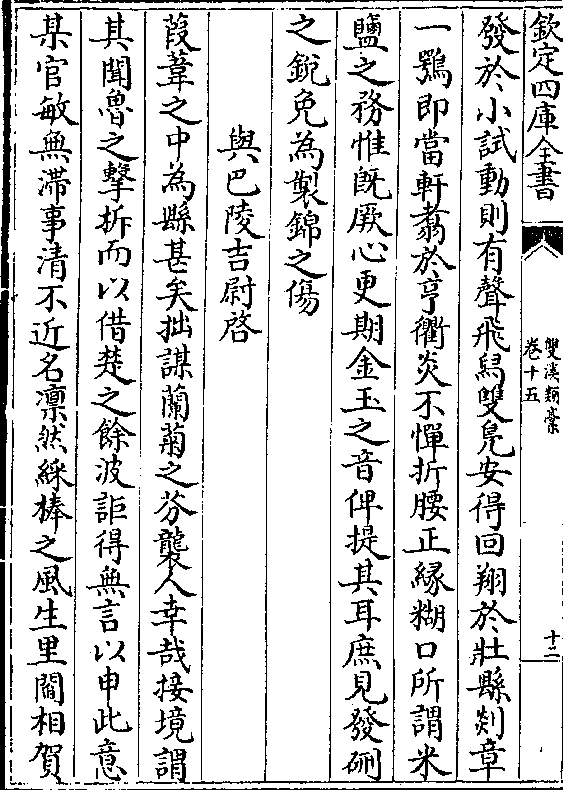 欽定四庫全書
雙溪類槀
卷十五
十二
發於小試動則有聲飛舄雙鳬安得回翔於壯縣剡章
一鶚即當軒翥於亨衢炎不憚折腰正緣糊口所謂米
鹽之務惟既厥心更期金玉之音俾提其耳庶見發硎
之銳免為製錦之傷
與巴陵吉尉啓
葭葦之中為縣甚矣拙謀蘭菊之芬襲人幸哉接境謂
其聞魯之擊柝而以借楚之餘波詎得無言以申此意
某官敏無滯事清不近名凛然綵棒之風生里閭相賀